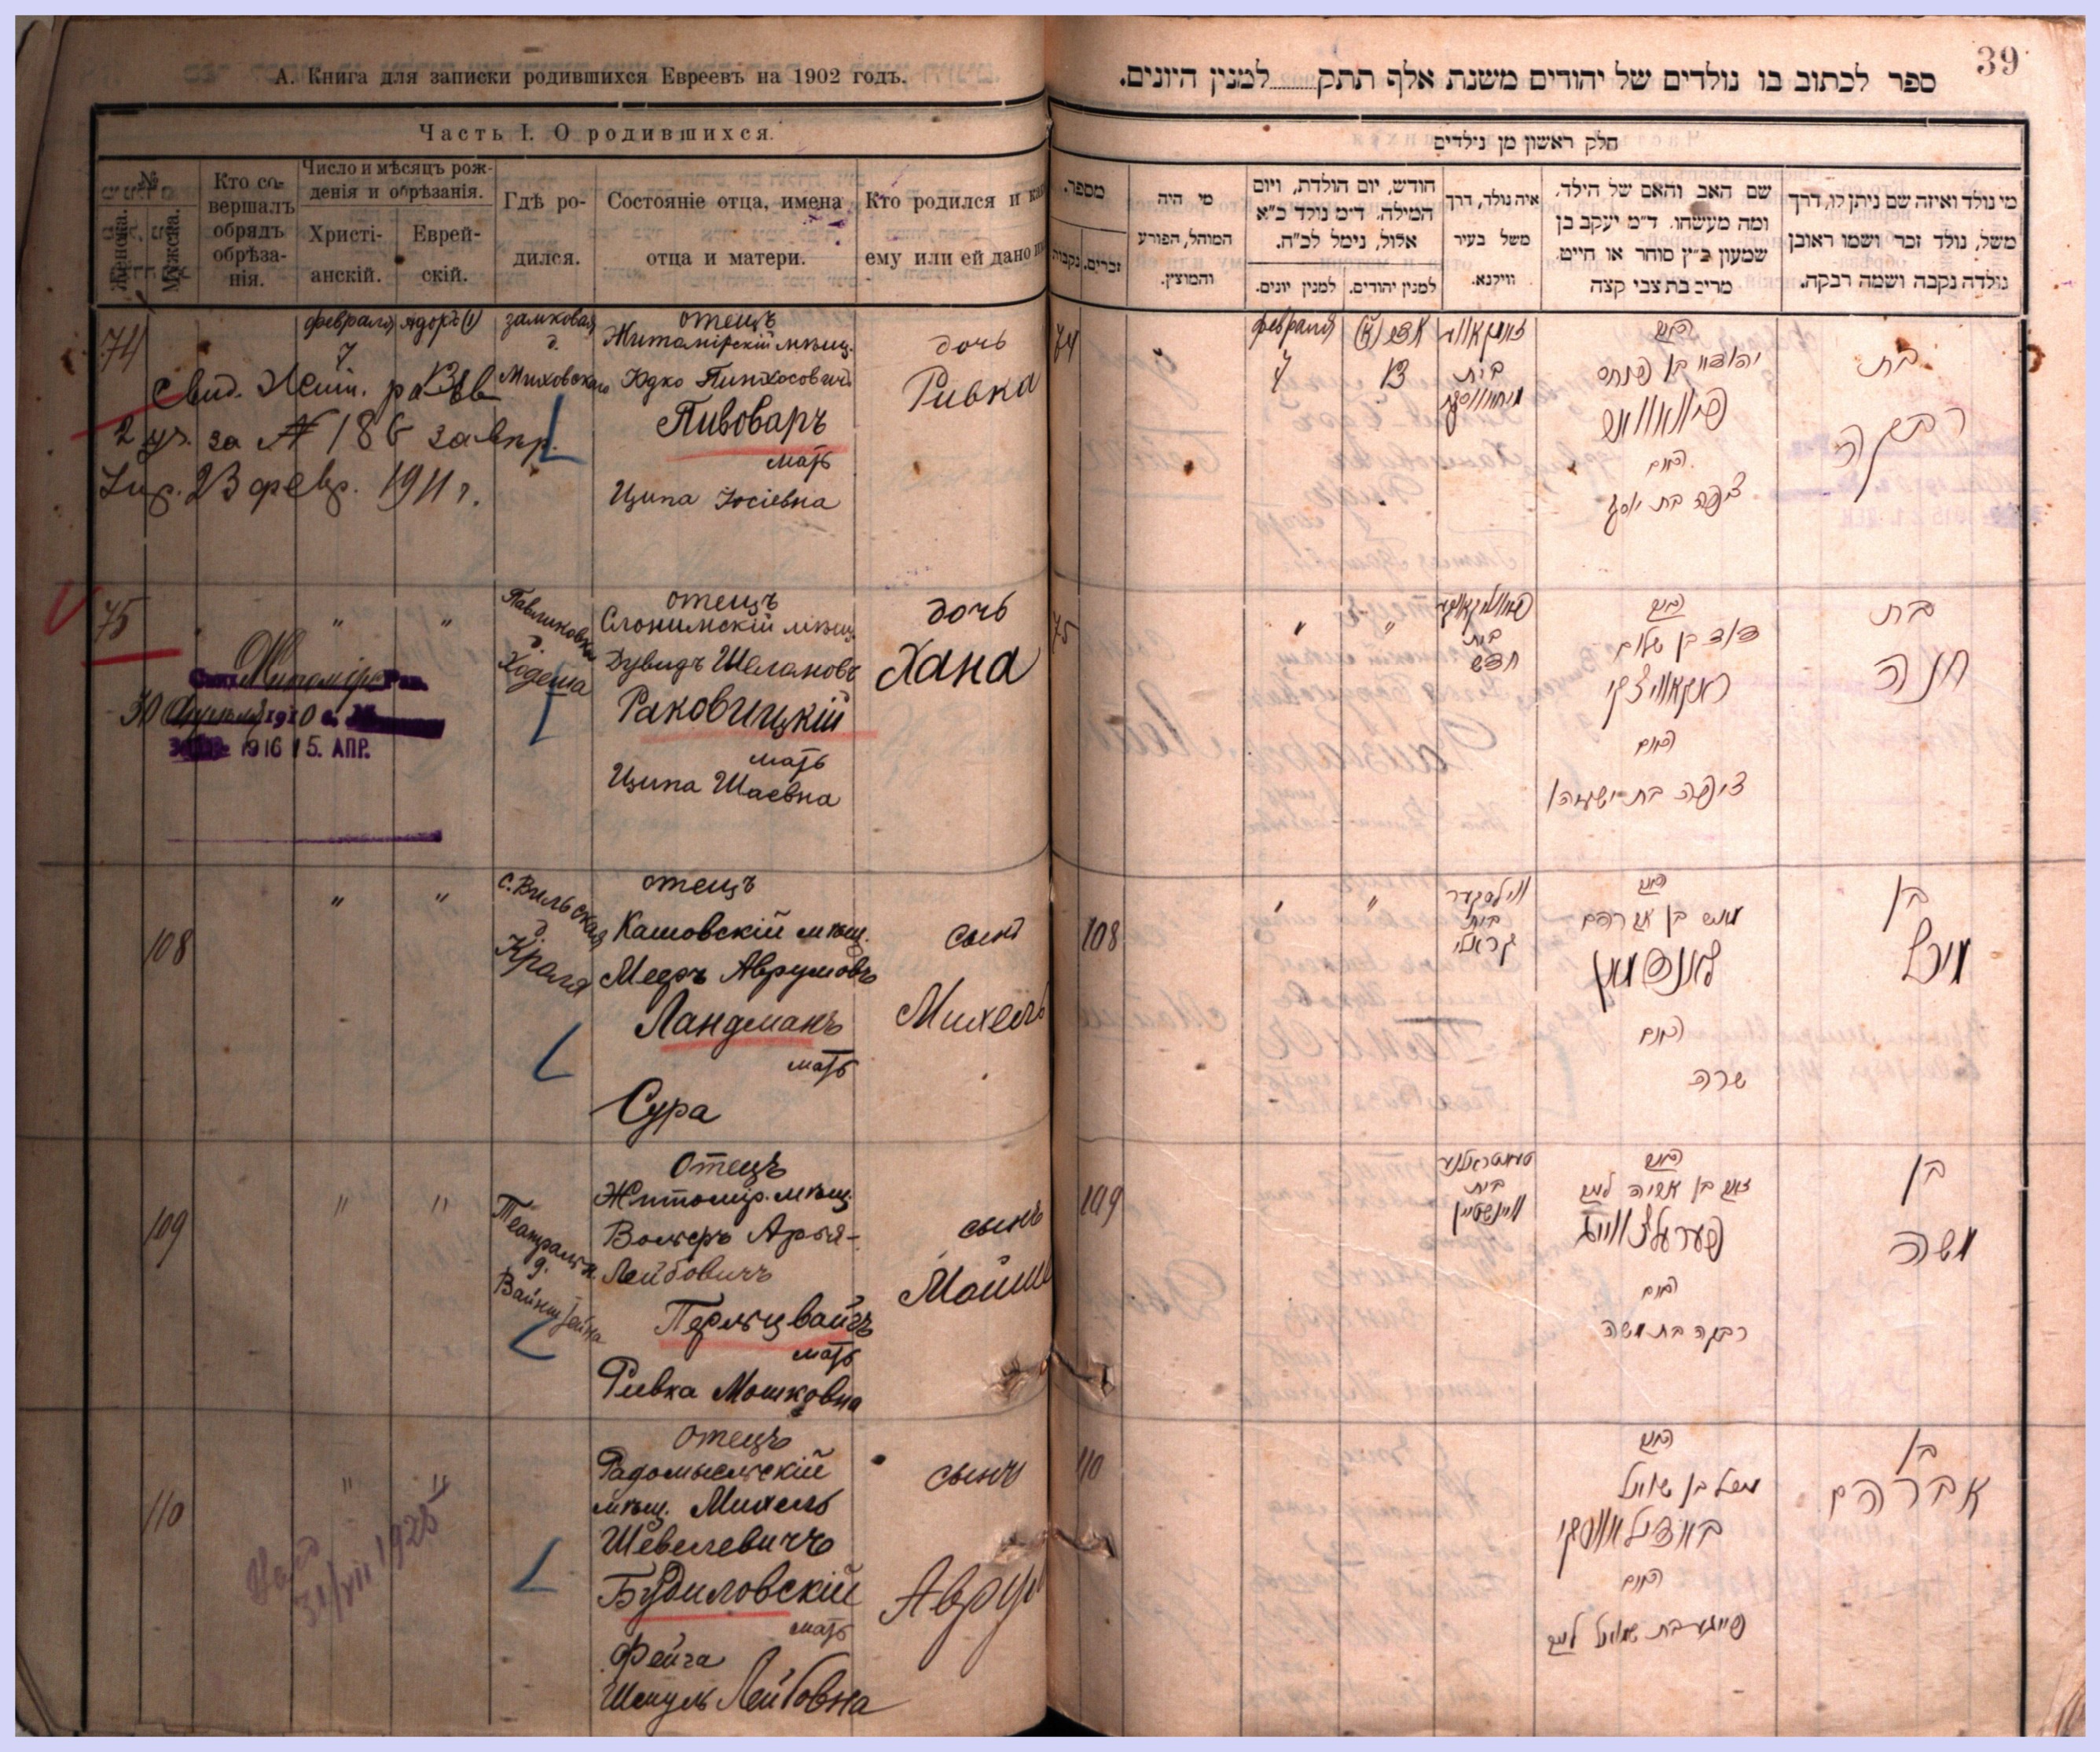 А. Книга для записки родившихся Евреевъ на 1902 годъ.
Часть I. О родившихся.
№
Женска.
Мужска.
Кто совершалъ обрядъ обрѣзанія.
Число и мѣсяцъ рожденія и обрѣзанія.
Христіанскій.
Еврейскій.
Гдѣ родился.
Состояніе отца, имена отца и матери.
Кто родился и
ему или ей дано
74
февраля
7
Адоръ (1)
13
замковая
д.
Миховскаго
отецъ
Житомірскій мѣщ.
Юдко Пинхосовичъ
Пивоваръ
мать
Ципа Іосіевна
дочь
Ривка
Свид. Жит.
2 уч. за № 186
23 февр. 1911 г.
75
"
"
Павликовка
д.
Ходеша
отецъ
Слонимскій мѣщ.
Дувидъ Шелановъ
Раковицкій
мать
Ципа Шаевна
дочь
Хана
1916 15. АПР.
108
"
"
с. Вильская
д.
Кроля
отецъ
Кашовскій мѣщ.
Мееръ Аврумовъ
Ландманъ
мать
Сура
сынъ
Михель
109
"
"
Театральн.
д.
Вайнштейна
Отецъ
Житомір. мѣщ.
Вольфъ Арья-
Лейбовичъ
Перльцвайгъ
мать
Ривка Мошковна
сынъ
Мойше
110
"
"
31/VII 1925
отецъ
Радомысльскій
мѣщ. Михель
Шевелевичъ
Будиловскій
мать
Фейга
Шмуль Лейбовна
сынъ
Аврум
39
ספר לכתוב בו נולדים של יהודים משנת אלף תתק למנין היונים.
חלק ראשון מן נילדים
מספר.
זכרים.
נקבות
מי היה
המוהל, הפורע
והמוצץ.
חודש, יום הולדת, ויום
המילה. ד״מ נולד כ״א
אלול, נימל לכ״ח.
למנין יהודים.
למנין יונים.
איה נולד, דרך
משל בעיר
וויקנא.
שם האב והאם של הילד.
ומה מעשהו. ד״מ יעקב בן
שמעון כ״ץ סוחר או חייט.
מרים בת צבי קצה
מי נולד ואיזה שם ניתן לו, דרך
משל, נולד זכר ושמו ראובן
נולדה נקבה ושמה רבקה.
74
февраля
7
13
בית
האב
יהודא בן פנחס
פיוואוואר
האם
ציפה בת יוסף
בת
רבקה
75
"
"
בית
חדש
האב
דוד בן שלום
ראקאוויצקי
האם
ציפה בת ישעיהו
בת
חנה
108
"
"
ווילסקער
בית
קראלי
האב
בן אברהם
לאנדמאן
האם
שרה
בן
מיכל
109
בית
וויינשטיין
האב
זאב בן אריה ליב
פערעלצווייג
האם
רבקה בת משה
בן
משה
110
האב
מיכל בן שאול
באדילאווסקי
האם
פייגע בת שמואל ליב
בן
אברהם